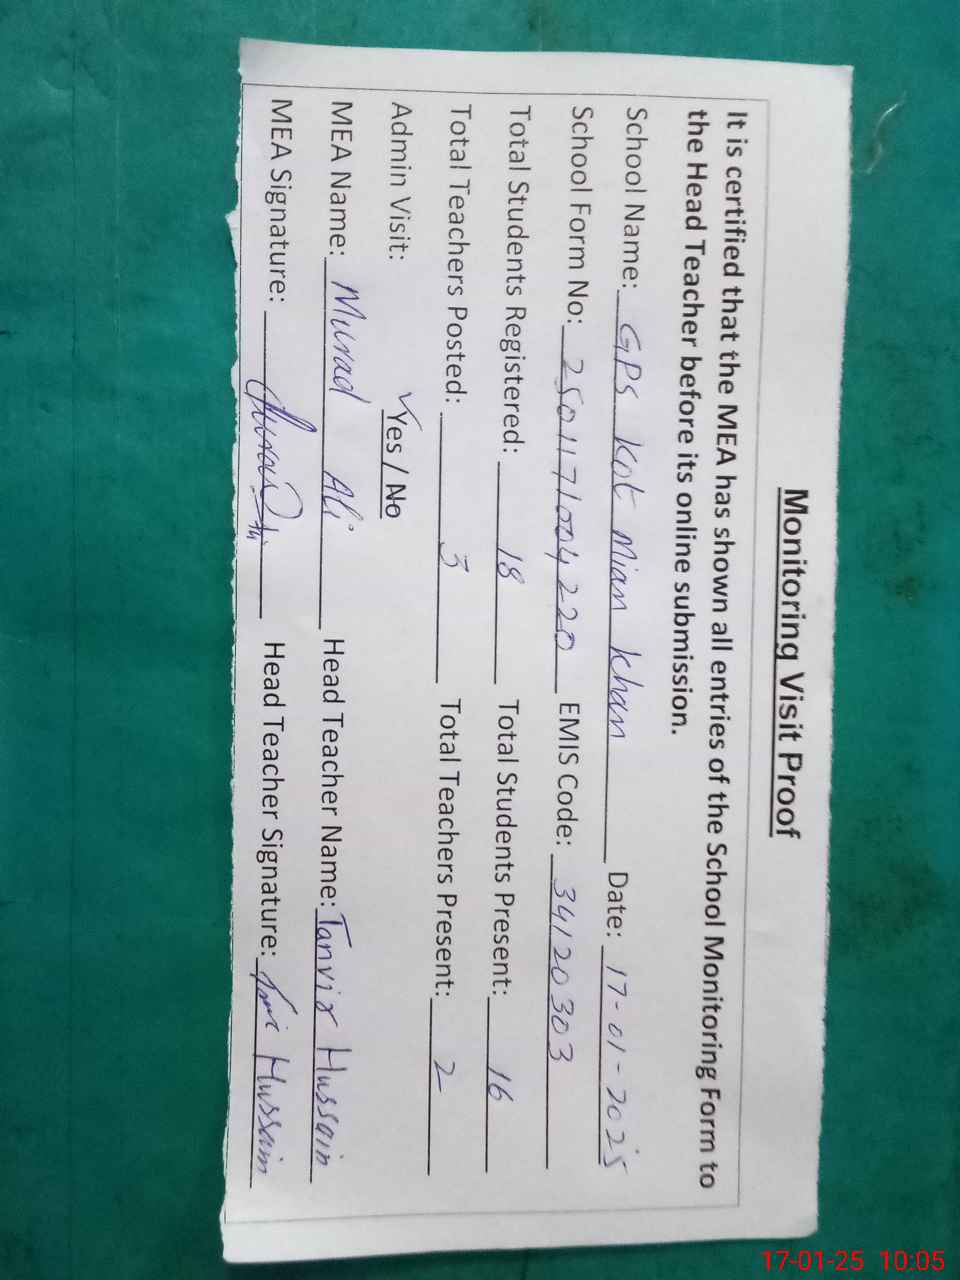 Monitoring Visit Proof
It is certified that the MEA has shown all entries of the School Monitoring Form to
the Head Teacher before its online submission.
School Name: GPS Kot Mian Khan Date: 17-01-2025
School Form No: 2501171004220 EMIS Code: 34120303
Total Students Registered: 18 Total Students Present: 16
Total Teachers Posted: 3 Total Teachers Present: 2
Admin Visit: ✓Yes / No
MEA Name: Murad Ali Head Teacher Name: Tanvir Hussain
MEA Signature: Head Teacher Signature: Hussain
17-01-25 10:05